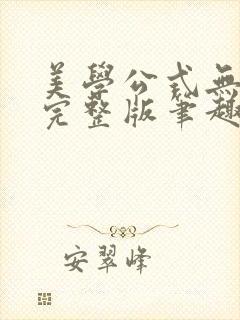 美學公式無
完整版筆趣
安翠峰